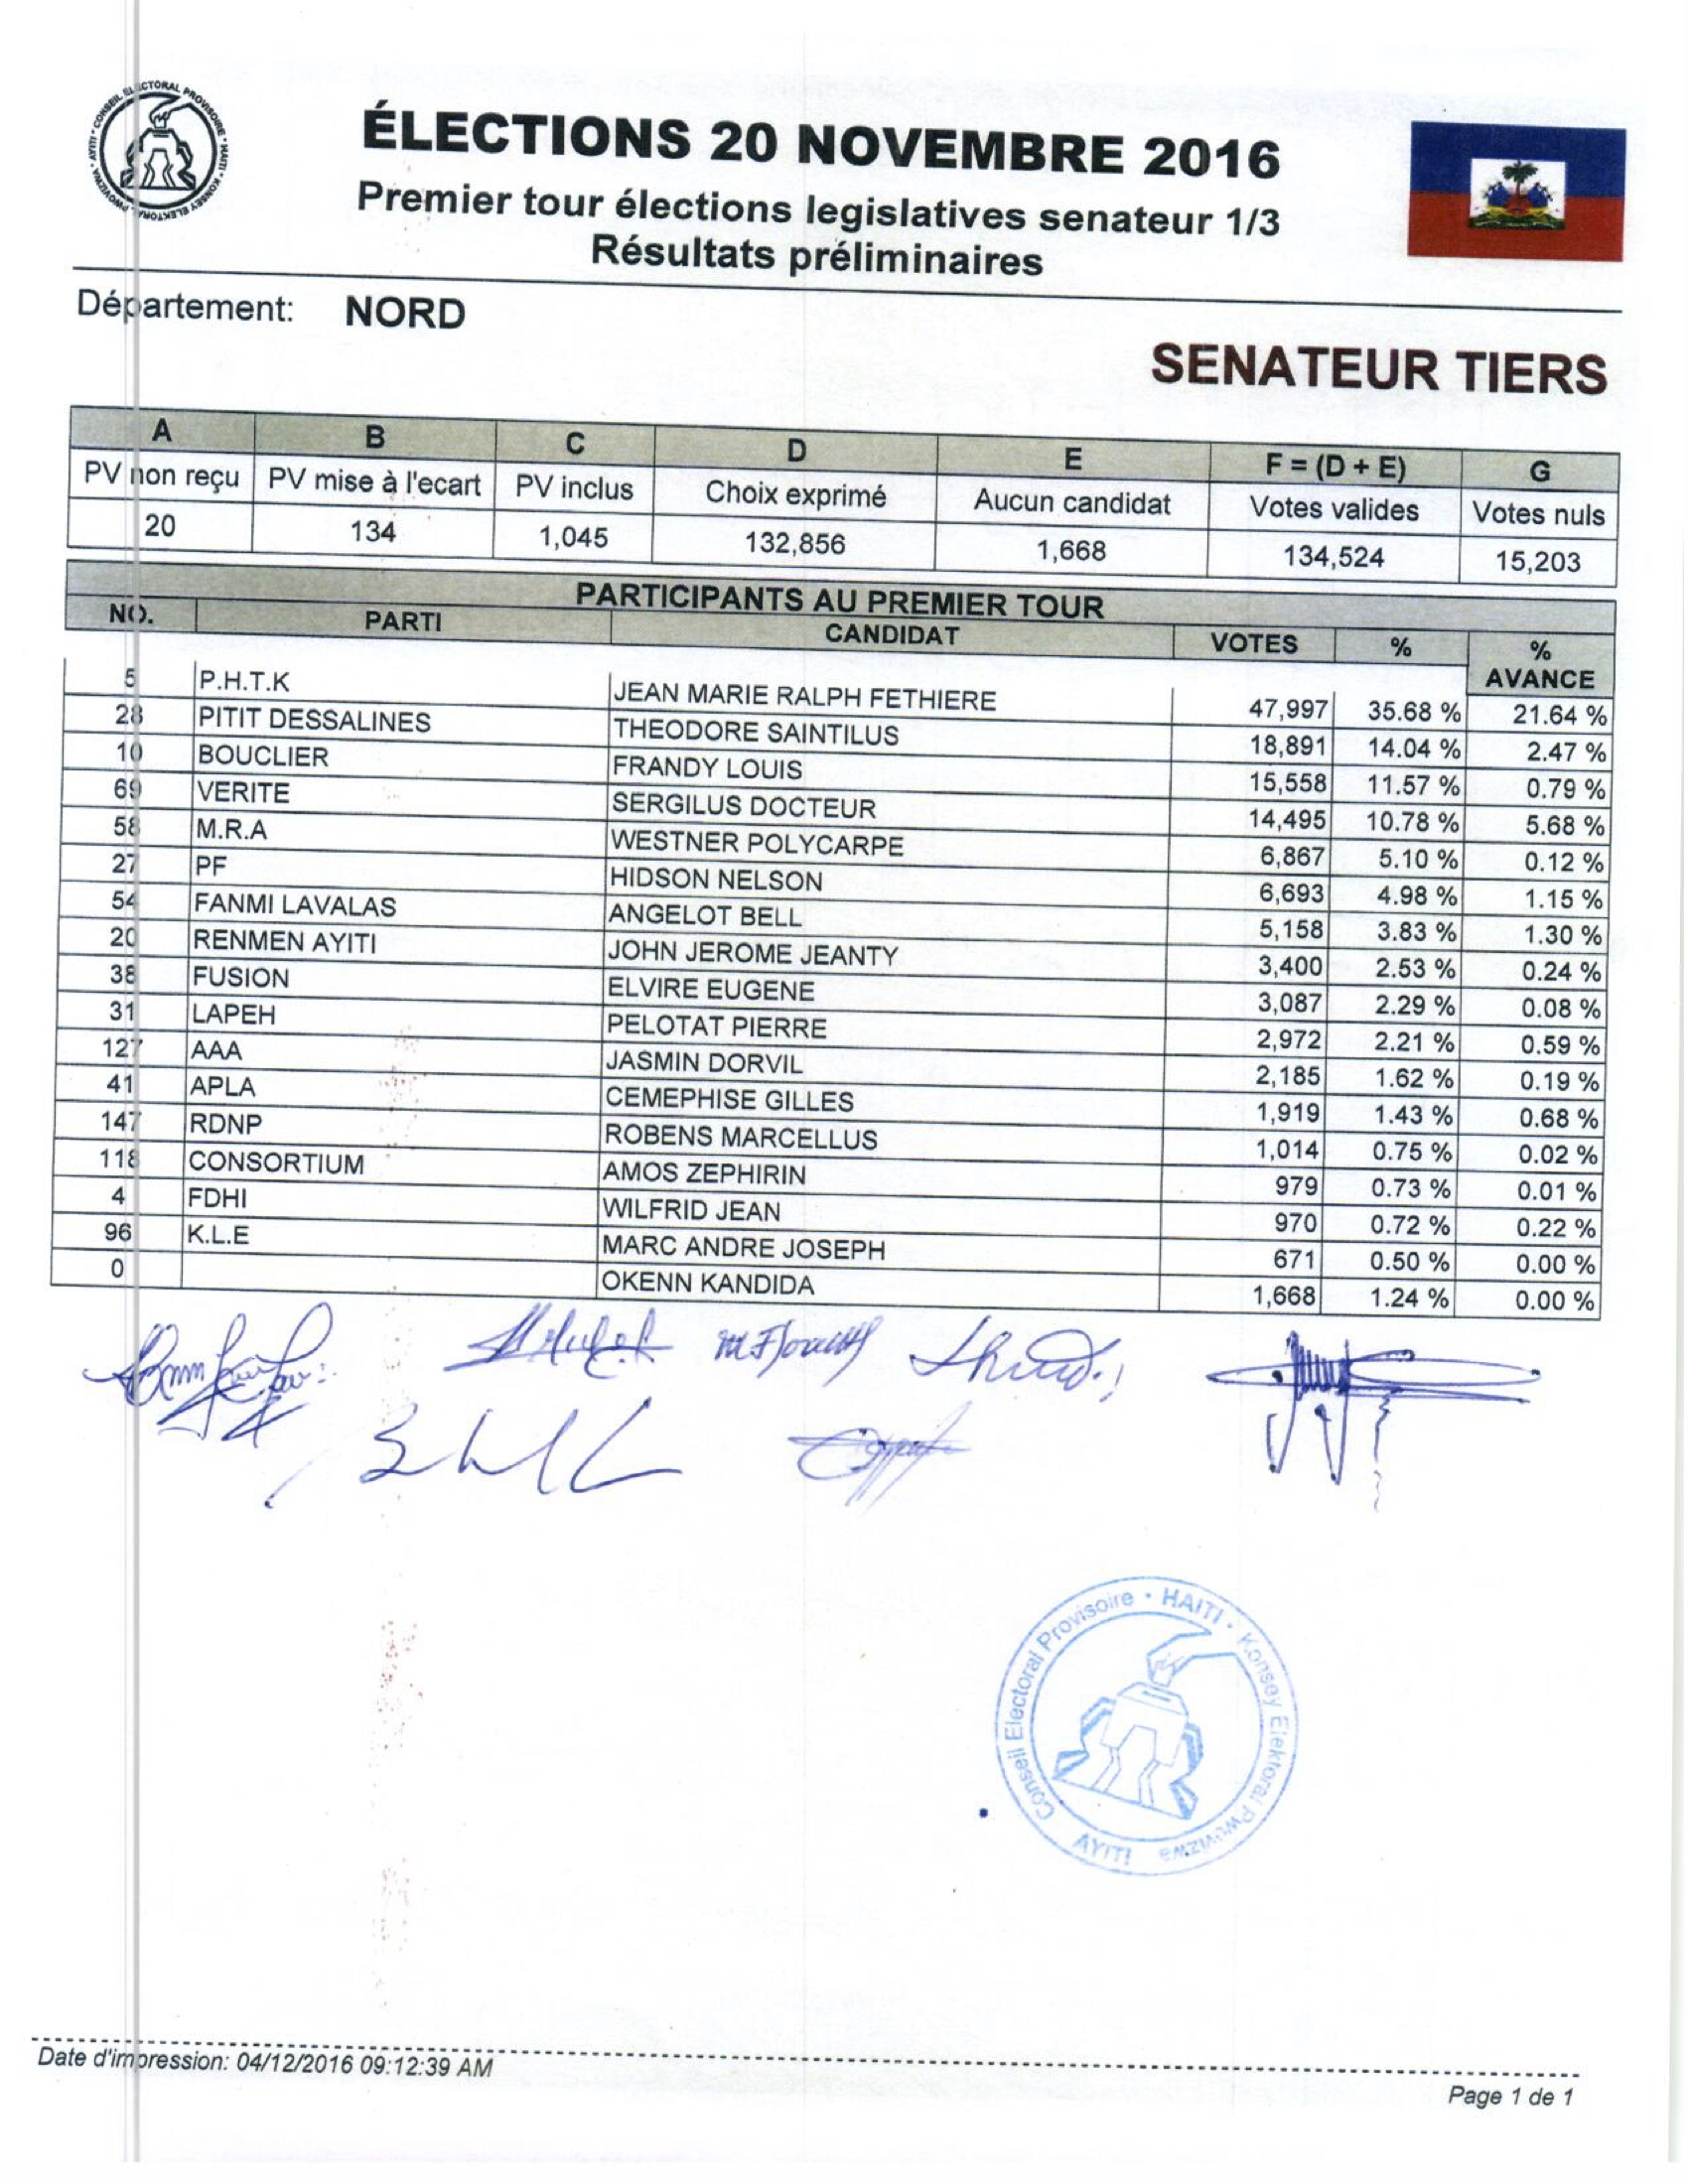 CONSEIL ELECTORAL PROVISOIRE • HAITI • KONSEY ELEKTORAL PWOVIZWA • AYITI •
ÉLECTIONS 20 NOVEMBRE 2016
Premier tour élections legislatives senateur 1/3
Résultats préliminaires
Département: NORD
SENATEUR TIERS
A B C D E F = (D + E) G
PV non reçu PV mise à l'ecart PV inclus Choix exprimé Aucun candidat Votes valides Votes nuls
20 134 1,045 132,856 1,668 134,524 15,203
PARTICIPANTS AU PREMIER TOUR
NO. PARTI CANDIDAT VOTES % % AVANCE
5 P.H.T.K JEAN MARIE RALPH FETHIERE 47,997 35.68 % 21.64 %
28 PITIT DESSALINES THEODORE SAINTILUS 18,891 14.04 % 2.47 %
10 BOUCLIER FRANDY LOUIS 15,558 11.57 % 0.79 %
69 VERITE SERGILUS DOCTEUR 14,495 10.78 % 5.68 %
58 M.R.A WESTNER POLYCARPE 6,867 5.10 % 0.12 %
27 PF HIDSON NELSON 6,693 4.98 % 1.15 %
54 FANMI LAVALAS ANGELOT BELL 5,158 3.83 % 1.30 %
20 RENMEN AYITI JOHN JEROME JEANTY 3,400 2.53 % 0.24 %
38 FUSION ELVIRE EUGENE 3,087 2.29 % 0.08 %
31 LAPEH PELOTAT PIERRE 2,972 2.21 % 0.59 %
127 AAA JASMIN DORVIL 2,185 1.62 % 0.19 %
41 APLA CEMEPHISE GILLES 1,919 1.43 % 0.68 %
147 RDNP ROBENS MARCELLUS 1,014 0.75 % 0.02 %
118 CONSORTIUM AMOS ZEPHIRIN 979 0.73 % 0.01 %
4 FDHI WILFRID JEAN 970 0.72 % 0.22 %
96 K.L.E MARC ANDRE JOSEPH 671 0.50 % 0.00 %
0 OKENN KANDIDA 1,668 1.24 % 0.00 %
Conseil Electoral Provisoire • HAITI • Konsey Elektoral Pwovizwa AYITI
Date d'impression: 04/12/2016 09:12:39 AM
Page 1 de 1